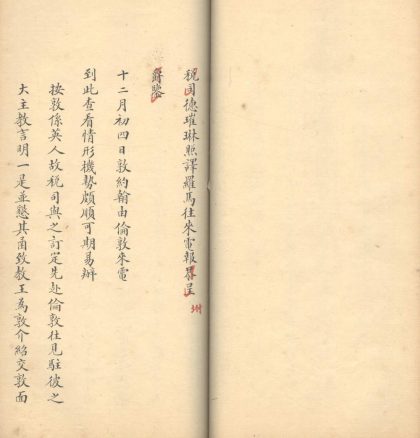 税司德璀琳照譯羅馬往來電報畧呈
爵鑒
十二月初四日敦約翰由倫敦來電
到此查看情形機勢頗順可期易辦
按敦係英人故税司與之訂定先赴倫敦往見駐彼之
大主教言明一是並懇其函致教王為敦介紹交敦面